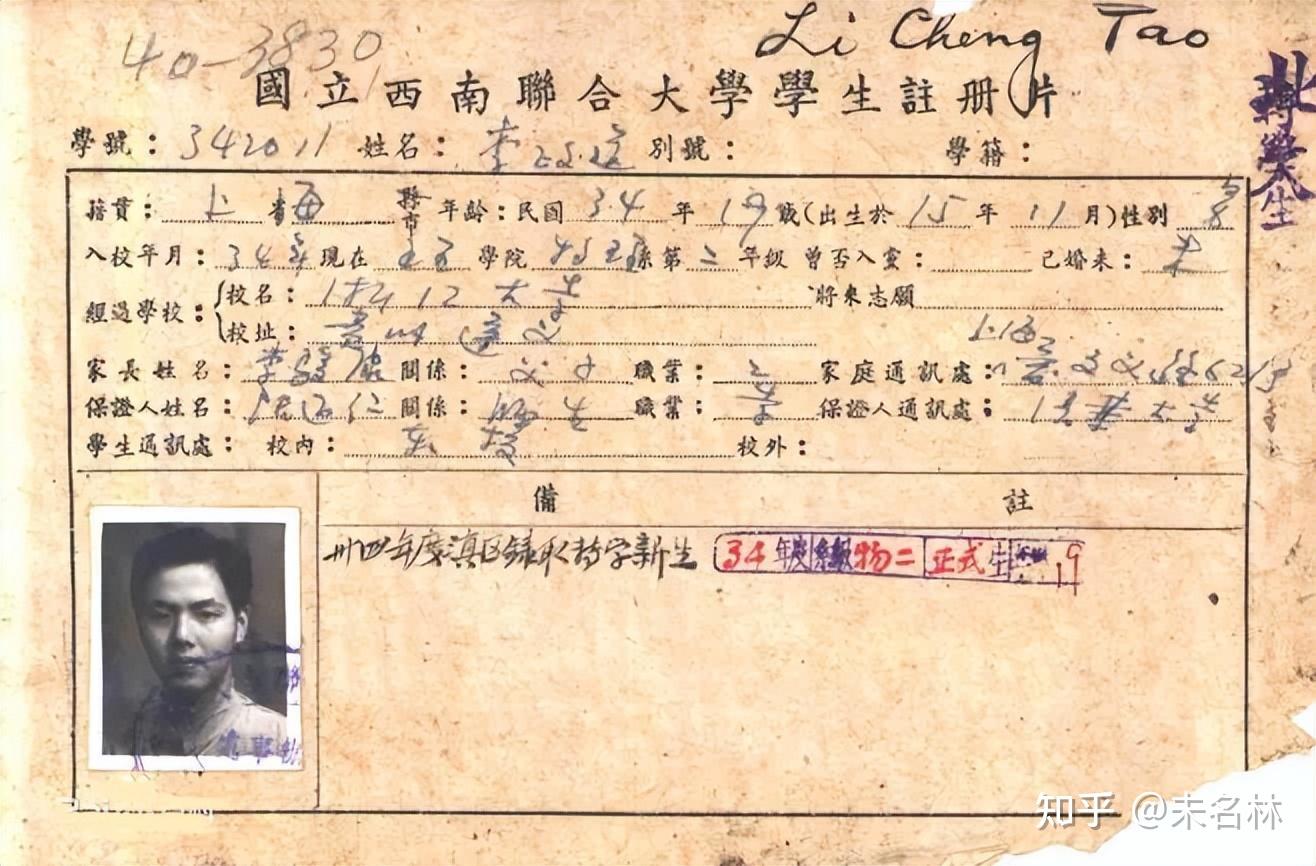 40-3830
Li Cheng Tao
國立西南聯合大學學生註冊片
學號:342011 姓名:李政道 別號: 學籍:
籍貫:上海 縣市 年齡:民國34年19歲(出生於15年11月)性別
入校年月:34年 現在 學院 物理系第二年級 曾否入黨: 已婚未:未
經過學校: 校名: 浙江大學 將來志願
校址:貴州
上海
家長姓名:李駿康 關係:父子 職業:工 家庭通訊處:
保證人姓名: 關係:師生 職業:學 保證人通訊處: 大學
學生通訊處: 校內: 校外:
備註
卅四年度滇區錄取轉學新生
34年度 物二 正式生 19
知乎 @未名林